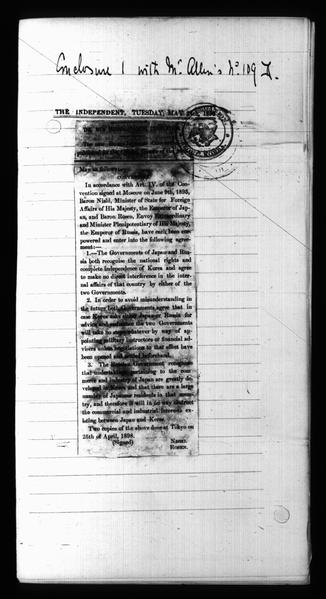 Enclosure 1 with Mr Allen's No 109
THE INDEPENDENT, TUESDAY, MAY
May as follows:—
In accordance with Art. IV. of the Con-
vention signed at Moscow on June 9th,
Baron Nishi, Minister of State for Foreign
Affairs of His Majesty, the Emperor of Jap-
an, and Baron Rosen, Envoy Extraordinary
and Minister Plenipotentiary of His Majesty,
the Emperor of Russia, have each been em-
powered and enter into the following agree-
ment:—
1.—The Governments of Japan and Rus-
sia both recognise the national rights and
complete independence of Korea and agree
to make no direct interference in the inter-
nal affairs of that country by either of the
two Governments.
2. In order to avoid misunderstanding in
the future both Governments agree that in
case Korea asks either Japan or Russia for
advice and assistance the two Governments
will take no steps whatever by way of ap-
pointing military instructors or financial ad-
visers unless negotiations to that effect have
been opened and settled beforehand.
3. The Russian Government recognize
that undertakings pertaining to the com-
merce and industry of Japan are greatly de-
veloped in Korea and that there are a large
number of Japanese residents in that coun-
try, and therefore it will in no way obstruct
the commercial and industrial interests ex-
isting between Japan and Korea.
Two copies of the above done at Tokyo on
25th of April, 1898.
(Signed)
ROSEN.